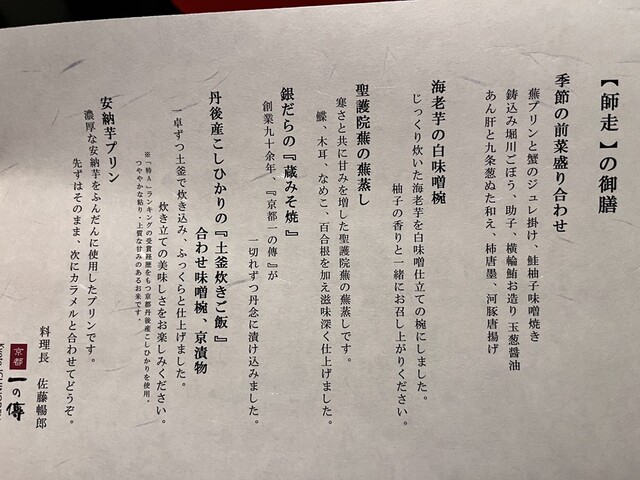 【師走】の御膳
季節の前菜盛り合わせ
蕪プリンと蟹のジュレ掛け、鮭柚子味噌焼き
鋳込み堀川ごぼう、助子、横輪鮪お造り 玉葱醤油
あん肝と九条葱ぬた和え、柿唐墨、河豚唐揚げ
海老芋の白味噌椀
じっくり炊いた海老芋を白味噌仕立ての椀にしました。
柚子の香りと一緒にお召し上がりください。
聖護院蕪の蕪蒸し
寒さと共に甘みを増した聖護院蕪の蕪蒸しです。
鰈、木耳、なめこ、百合根を加え滋味深く仕上げました。
銀だらの『蔵みそ焼』
創業九十余年、『京都一の傳』が
一切れずつ丹念に漬け込みました。
丹後産こしひかりの『土釜炊きご飯』
合わせ味噌椀、京漬物
一卓ずつ土釜で炊き込み、ふっくらと仕上げました。
炊き立ての美味しさをお楽しみください。
※「特A」ランキングの受賞経歴をもつ京都丹後産こしひかりを使用。
つややかな粘り・上質な甘みのあるお米です。
安納芋プリン
濃厚な安納芋をふんだんに使用したプリンです。
先ずはそのまま、次にカラメルと合わせてどうぞ。
料理長 佐藤暢郎
京都
一の傳